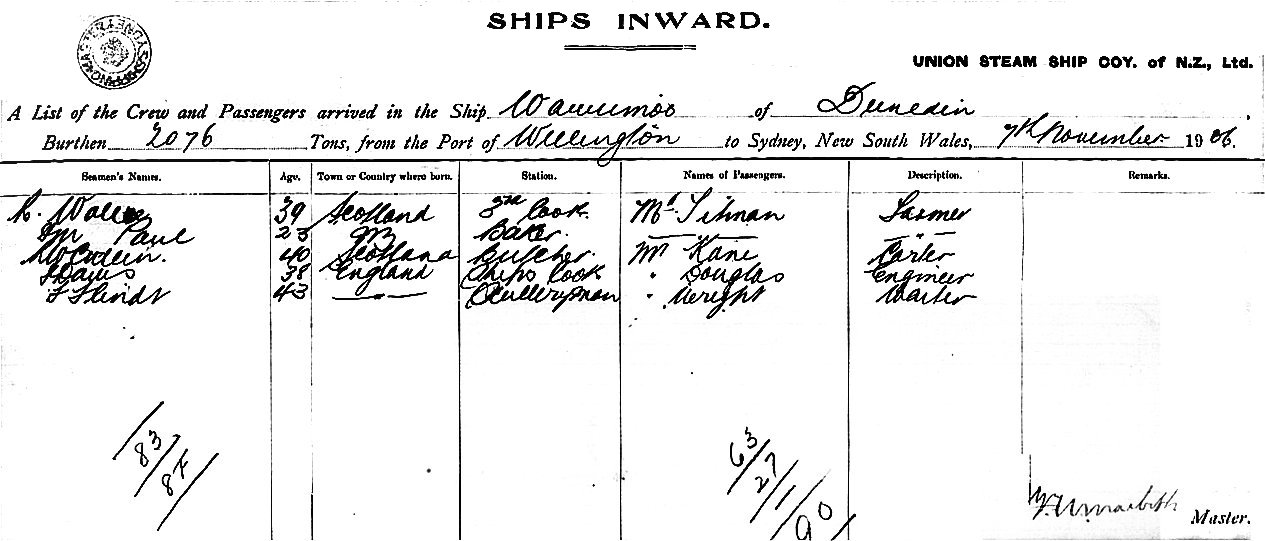 SHIPS INWARD.
UNION STEAM SHIP COY. of N.Z., Ltd.
A List of the Crew and Passengers arrived in the Ship Warrimoo of Dunedin
Burthen 2076 Tons, from the Port of Wellington to Sydney, New South Wales, 7th November 1906.
Seamen's Names. Age. Town or Country where born. Station. Names of Passengers. Description. Remarks.
39 Scotland 3rd Cook Mr Titman Farmer
Wm Paul 23 Baker. — " —
40 Scotland Butcher. Mr Kane Carter
Davis 38 England Ships Cook " Douglas Engineer
F Flindt 43 — " — " Wright Waiter
83/87
63/27/1/90
Master.